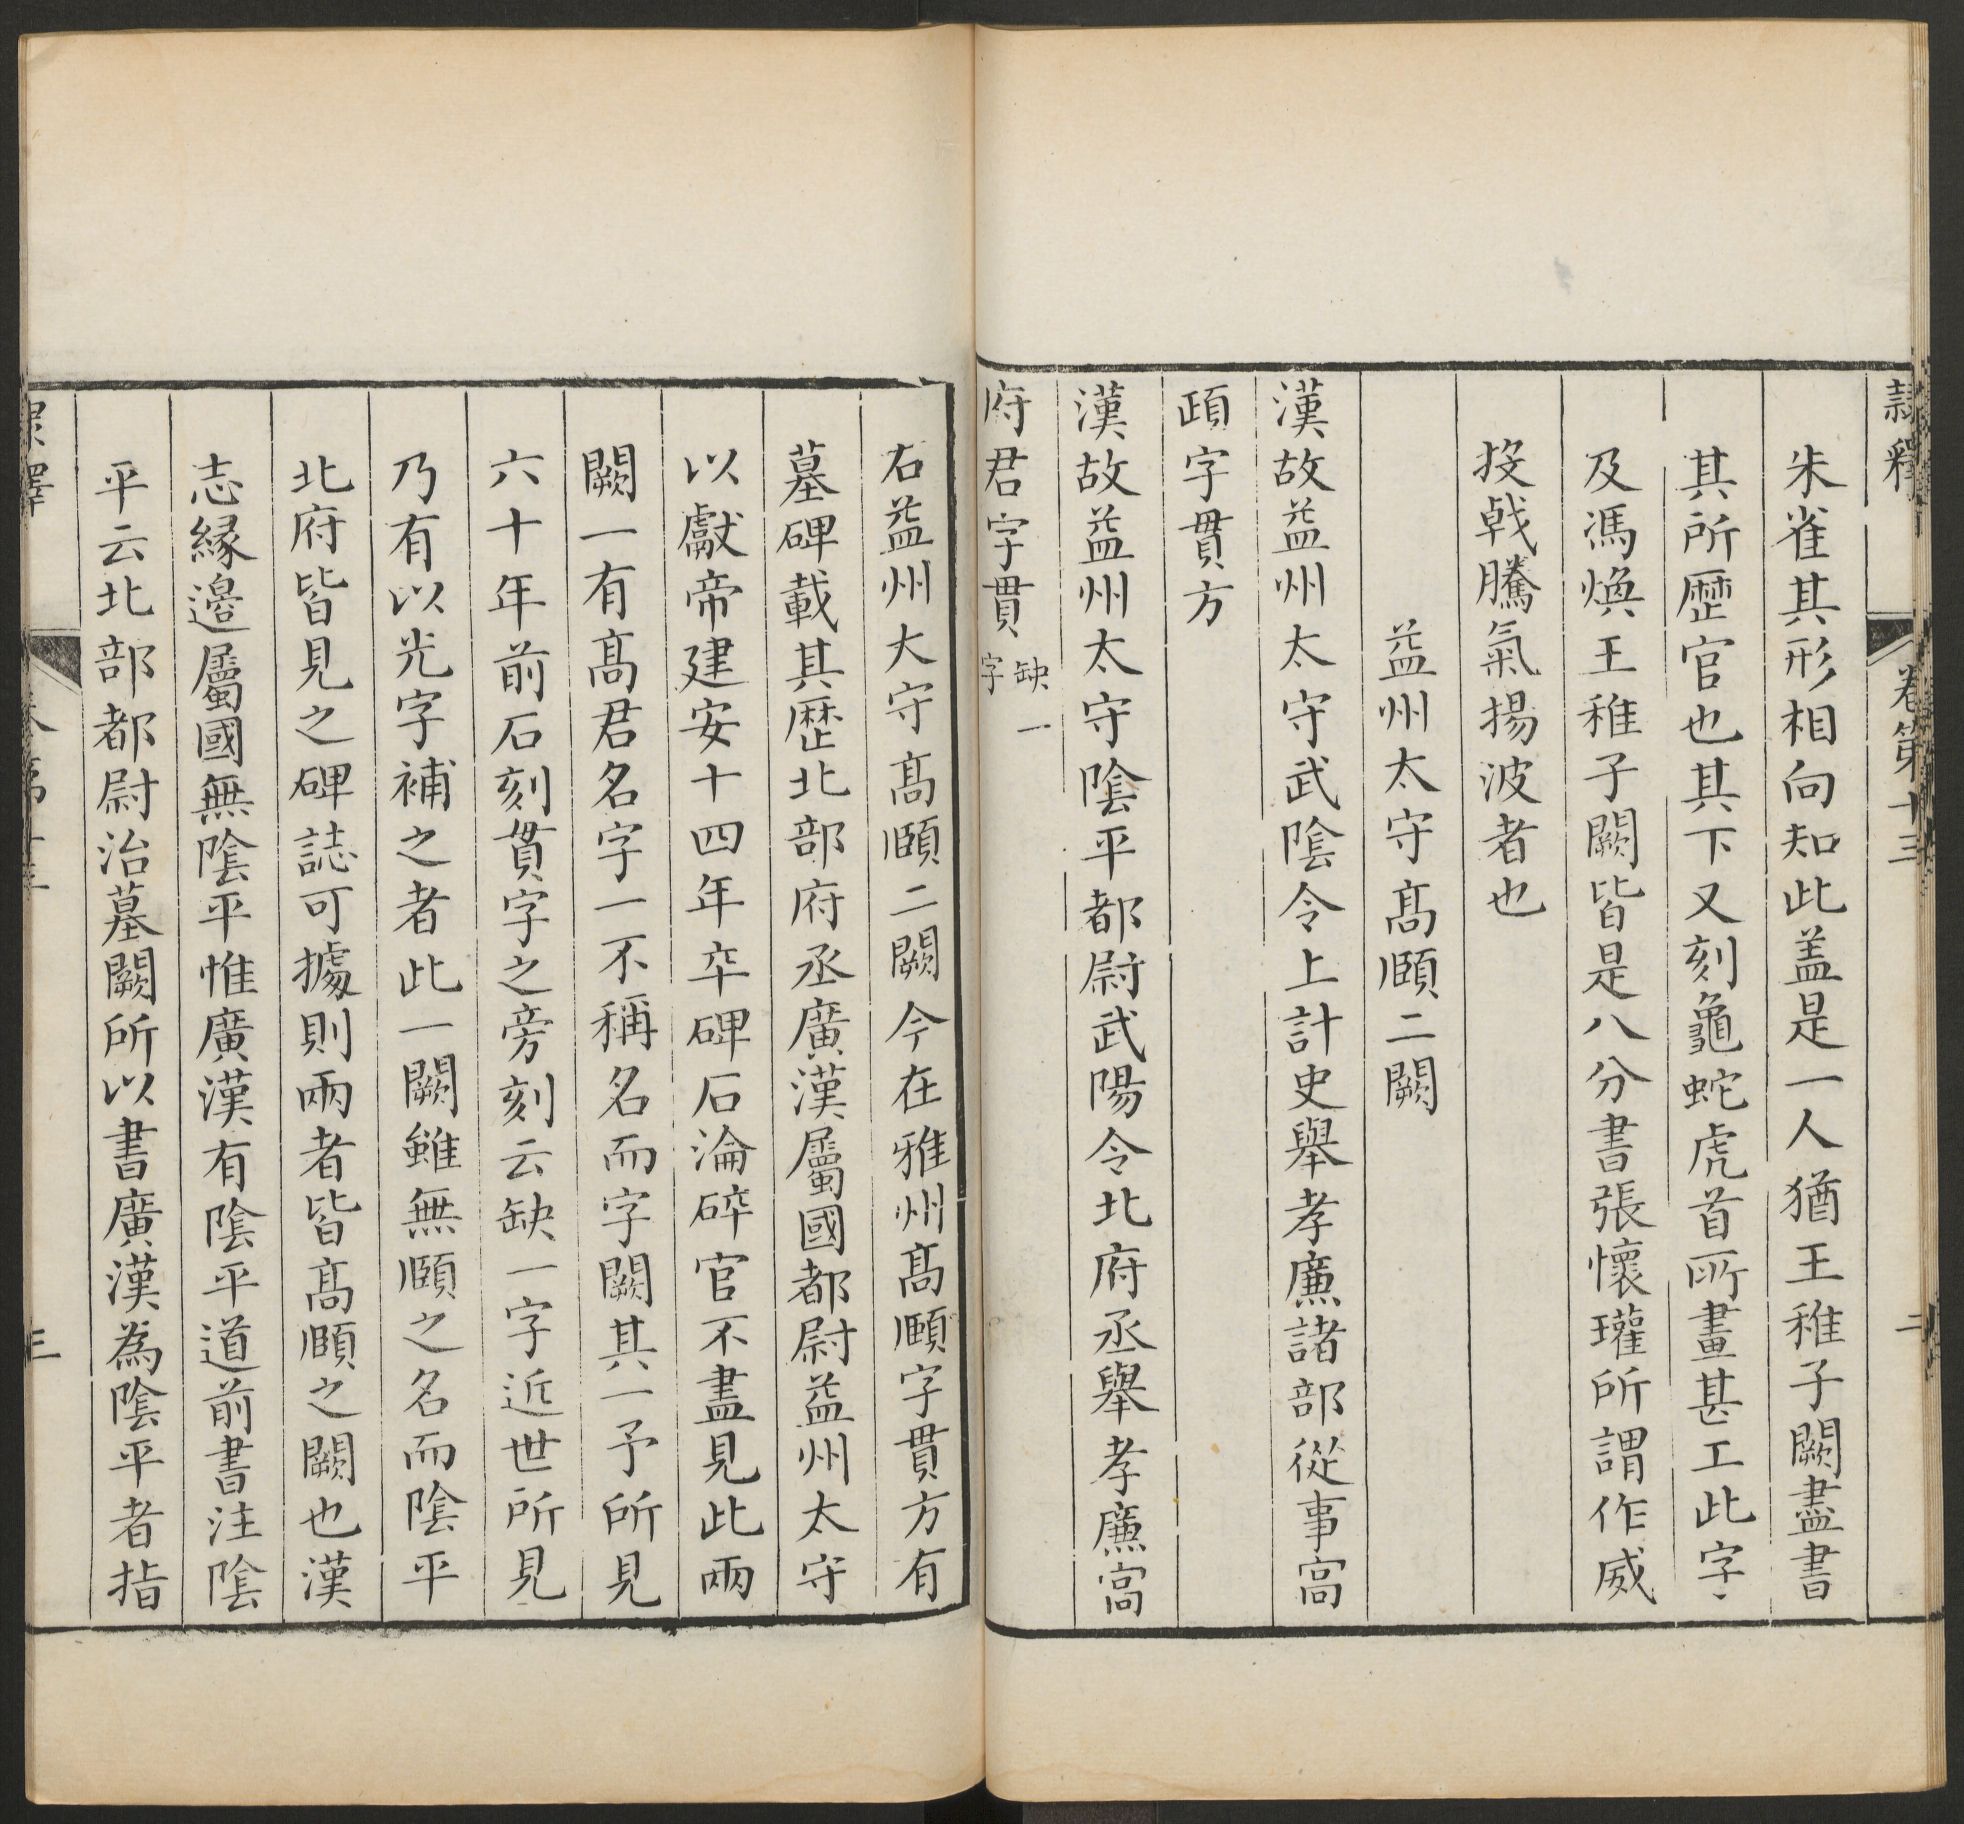 隸釋 卷第十三 二
朱雀其形相向知此盖是一人猶王稚子闕盡書
其所歷官也其下又刻龜蛇虎首所畫甚工此字
及馮煥王稚子闕皆是八分書張懷瓘所謂作威
投戟騰氣揚波者也
益州太守髙頤二闕
漢故益州太守武陰令上計史舉孝廉諸部從事髙
頤字貫方
漢故益州太守陰平都尉武陽令北府丞舉孝廉髙
府君字貫缺一字
右益州大守髙頤二闕今在雅州髙頤字貫方有
墓碑載其歷北部府丞廣漢屬國都尉益州太守
以獻帝建安十四年卒碑石淪碎官不盡見此兩
闕一有髙君名字一不稱名而字闕其一予所見
六十年前石刻貫字之旁刻云缺一字近世所見
乃有以光字補之者此一闕雖無頤之名而陰平
北府皆見之碑誌可據則兩者皆髙頤之闕也漢
志緣邊屬國無陰平惟廣漢有陰平道前書注陰
平云北部都尉治墓闕所以書廣漢為陰平者指
隸釋 卷第十三 三